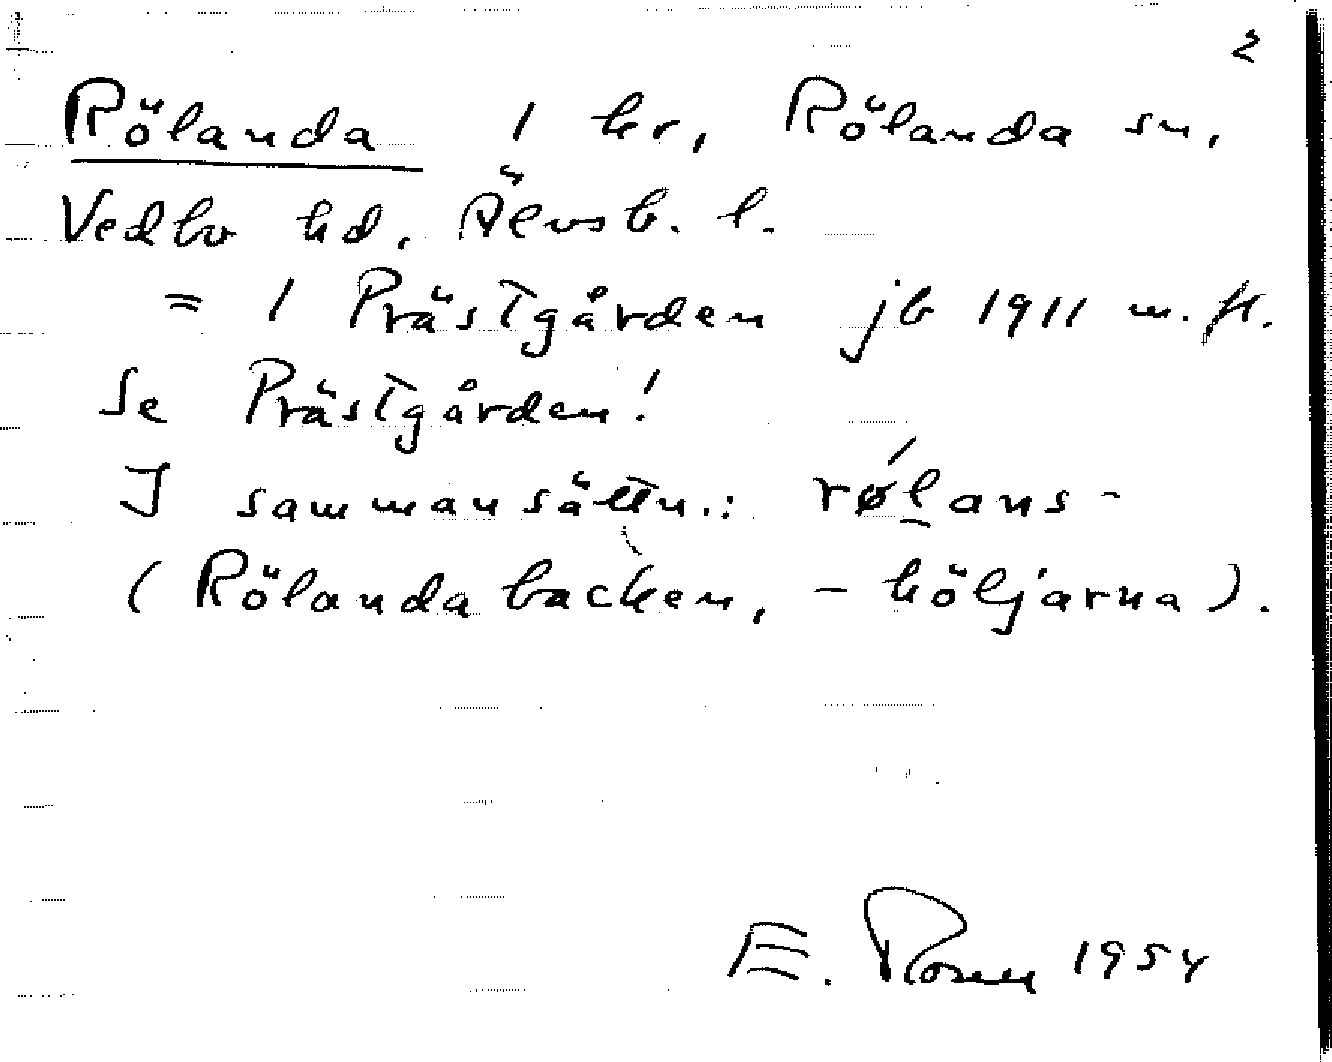 2
Rölanda 1 hr, Rölanda sn,
Vedbo hd, Älvsb. l.
= 1 Prästgården jb 1911 m. fl.
Se Prästgården!
I sammansättn.: røʹl̠ans-
(Rölandabacken, -höljarna).
E. Rosell 1954